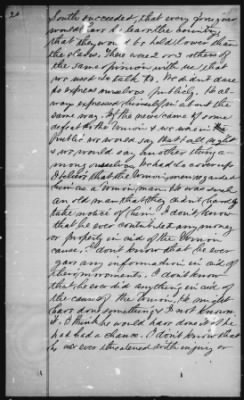 South succeeded, that every
would have to leave the country
that they would be held lower than
the slaves. There were 2 or 3 others of
the same opinion with us, that
we used to talk to. We didn't dare
to express ourselves publicly. He al-
ways expressed himself in about the
same way. If the news came of some
defeat to the Union & we was in
public we would say, that's all right
& we would say another thing a-
mong ourselves. We had to cover up
I believe that the Union men regarded
him as a Union man. He was such
an old man that they didn't hardly
take notice of him. I don't know
that he ever contributed any money
or property in aid of the Union
cause. I don't know that he ever
gave any information in aid of
their movements. I don't know
that he ever did anything in aid
of the cause of the Union. He might
have done something & I not known
it. I think he would have done it if he
had had a chance. I don't know that
he was ever threatened with injury or